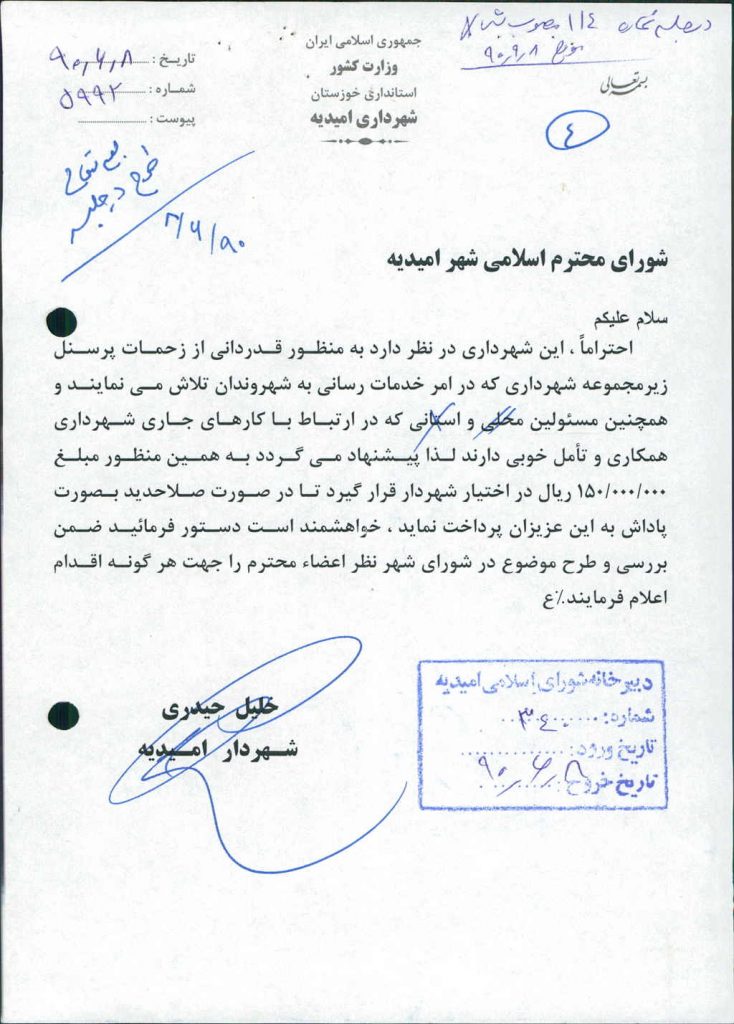 در جلسه شماره ۱۱۴ مصوب شد
مورخ ۹۰،۹،۸
بسمه تعالی
۴
جمهوری اسلامی ایران
وزارت کشور
استانداری خوزستان
شهرداری امیدیه
تاریخ : ۹۰،۶،۸
شماره : ۵۹۹۲
پیوست :
طرح در جلسه
۹۰/۶/۸
شورای محترم اسلامی شهر امیدیه
سلام علیکم
احتراماً ، این شهرداری در نظر دارد به منظور قدردانی از زحمات پرسنل
زیرمجموعه شهرداری که در امر خدمات رسانی به شهروندان تلاش می نمایند و
همچنین مسئولین محلی و استانی که در ارتباط با کارهای جاری شهرداری
همکاری و تأمل خوبی دارند لذا پیشنهاد می گردد به همین منظور مبلغ
۱۵۰/۰۰۰/۰۰۰ ریال در اختیار شهردار قرار گیرد تا در صورت صلاحدید بصورت
پاداش به این عزیزان پرداخت نماید ، خواهشمند است دستور فرمائید ضمن
بررسی و طرح موضوع در شورای شهر نظر اعضاء محترم را جهت هر گونه اقدام
اعلام فرمایند.٪ع
خلیل حیدری
شهردار امیدیه
دبیرخانه شورای اسلامی امیدیه
شماره: ۳۴۰
تاریخ ورود:
تاریخ خروج: ۹۰،۶،۸